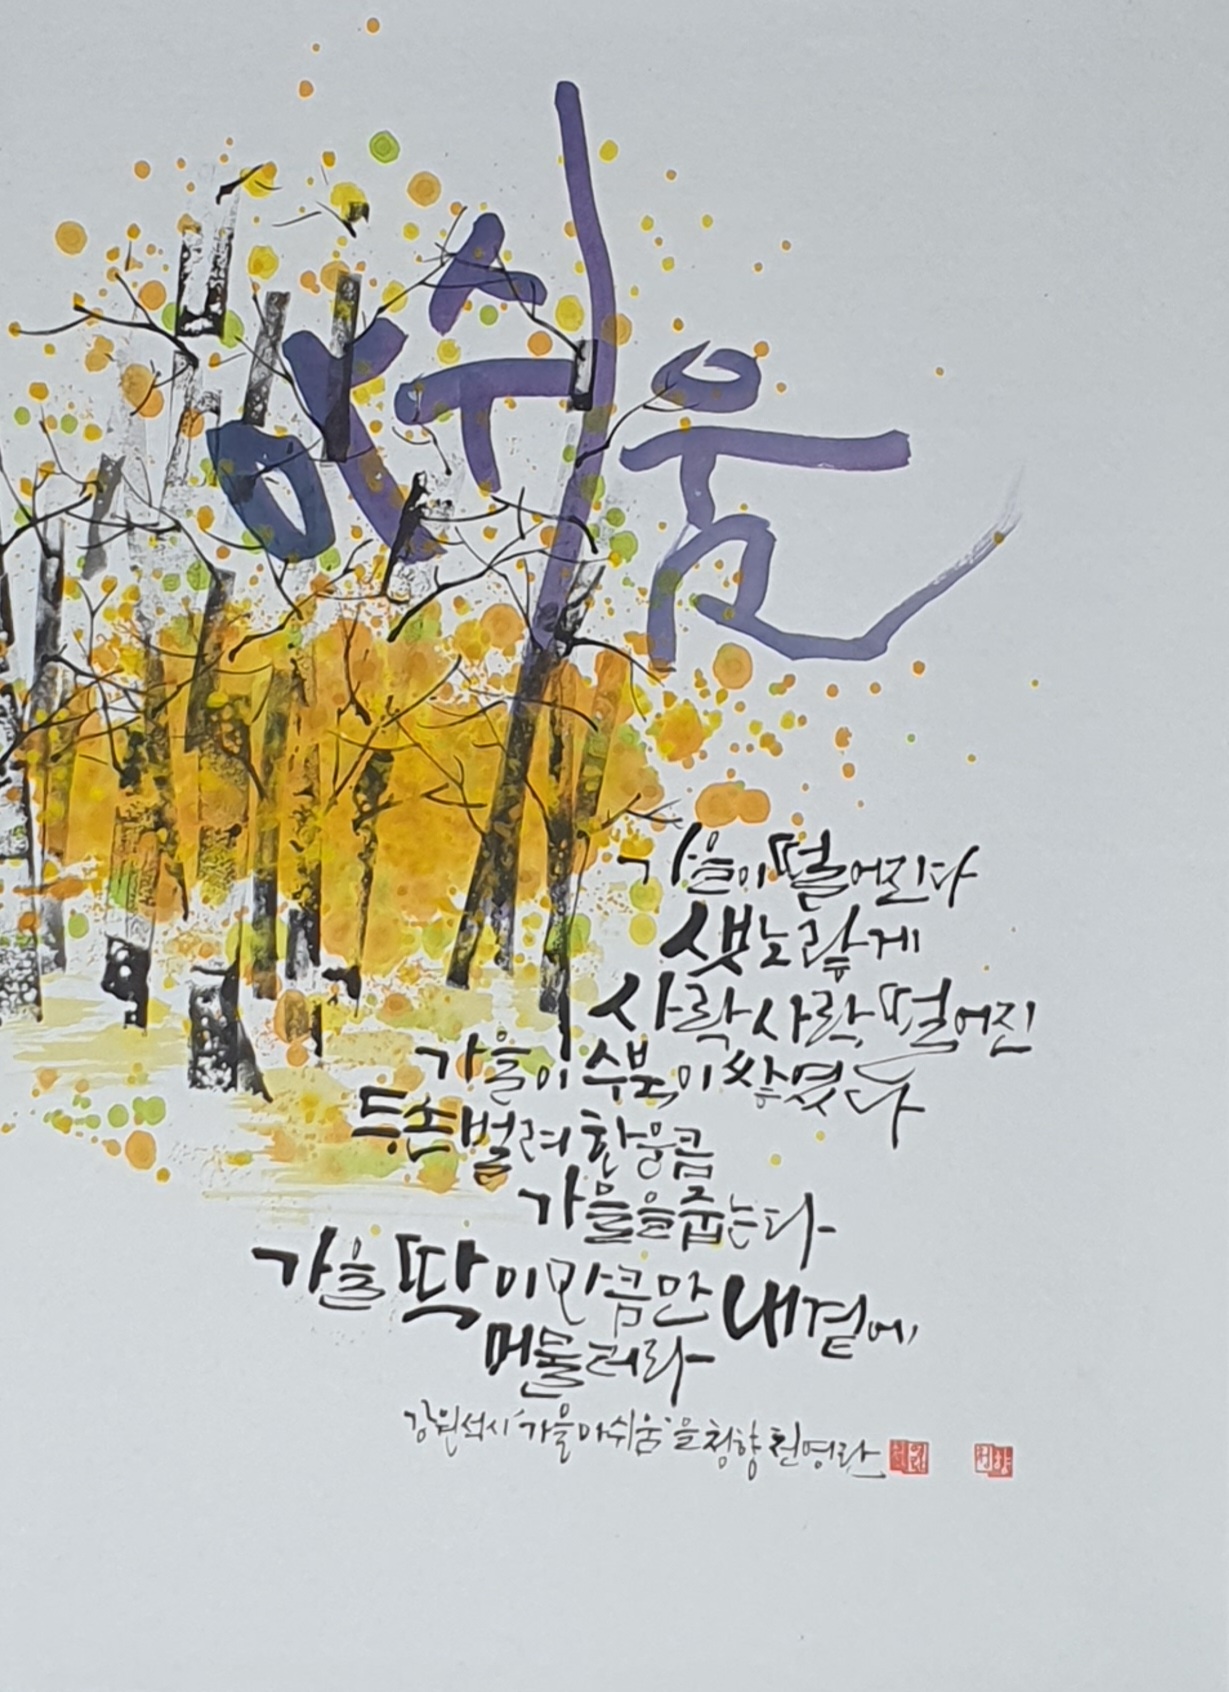 아쉬움
가을이 떨어진다
샛노랗게
사락사락 떨어진
가을이 수북이 쌓였다
두손 벌려 한웅큼
가을을 줍는다
가을 딱 이만큼만 내곁에
머물러라
강원석 시 '가을 아쉬움'을 청향 천영란